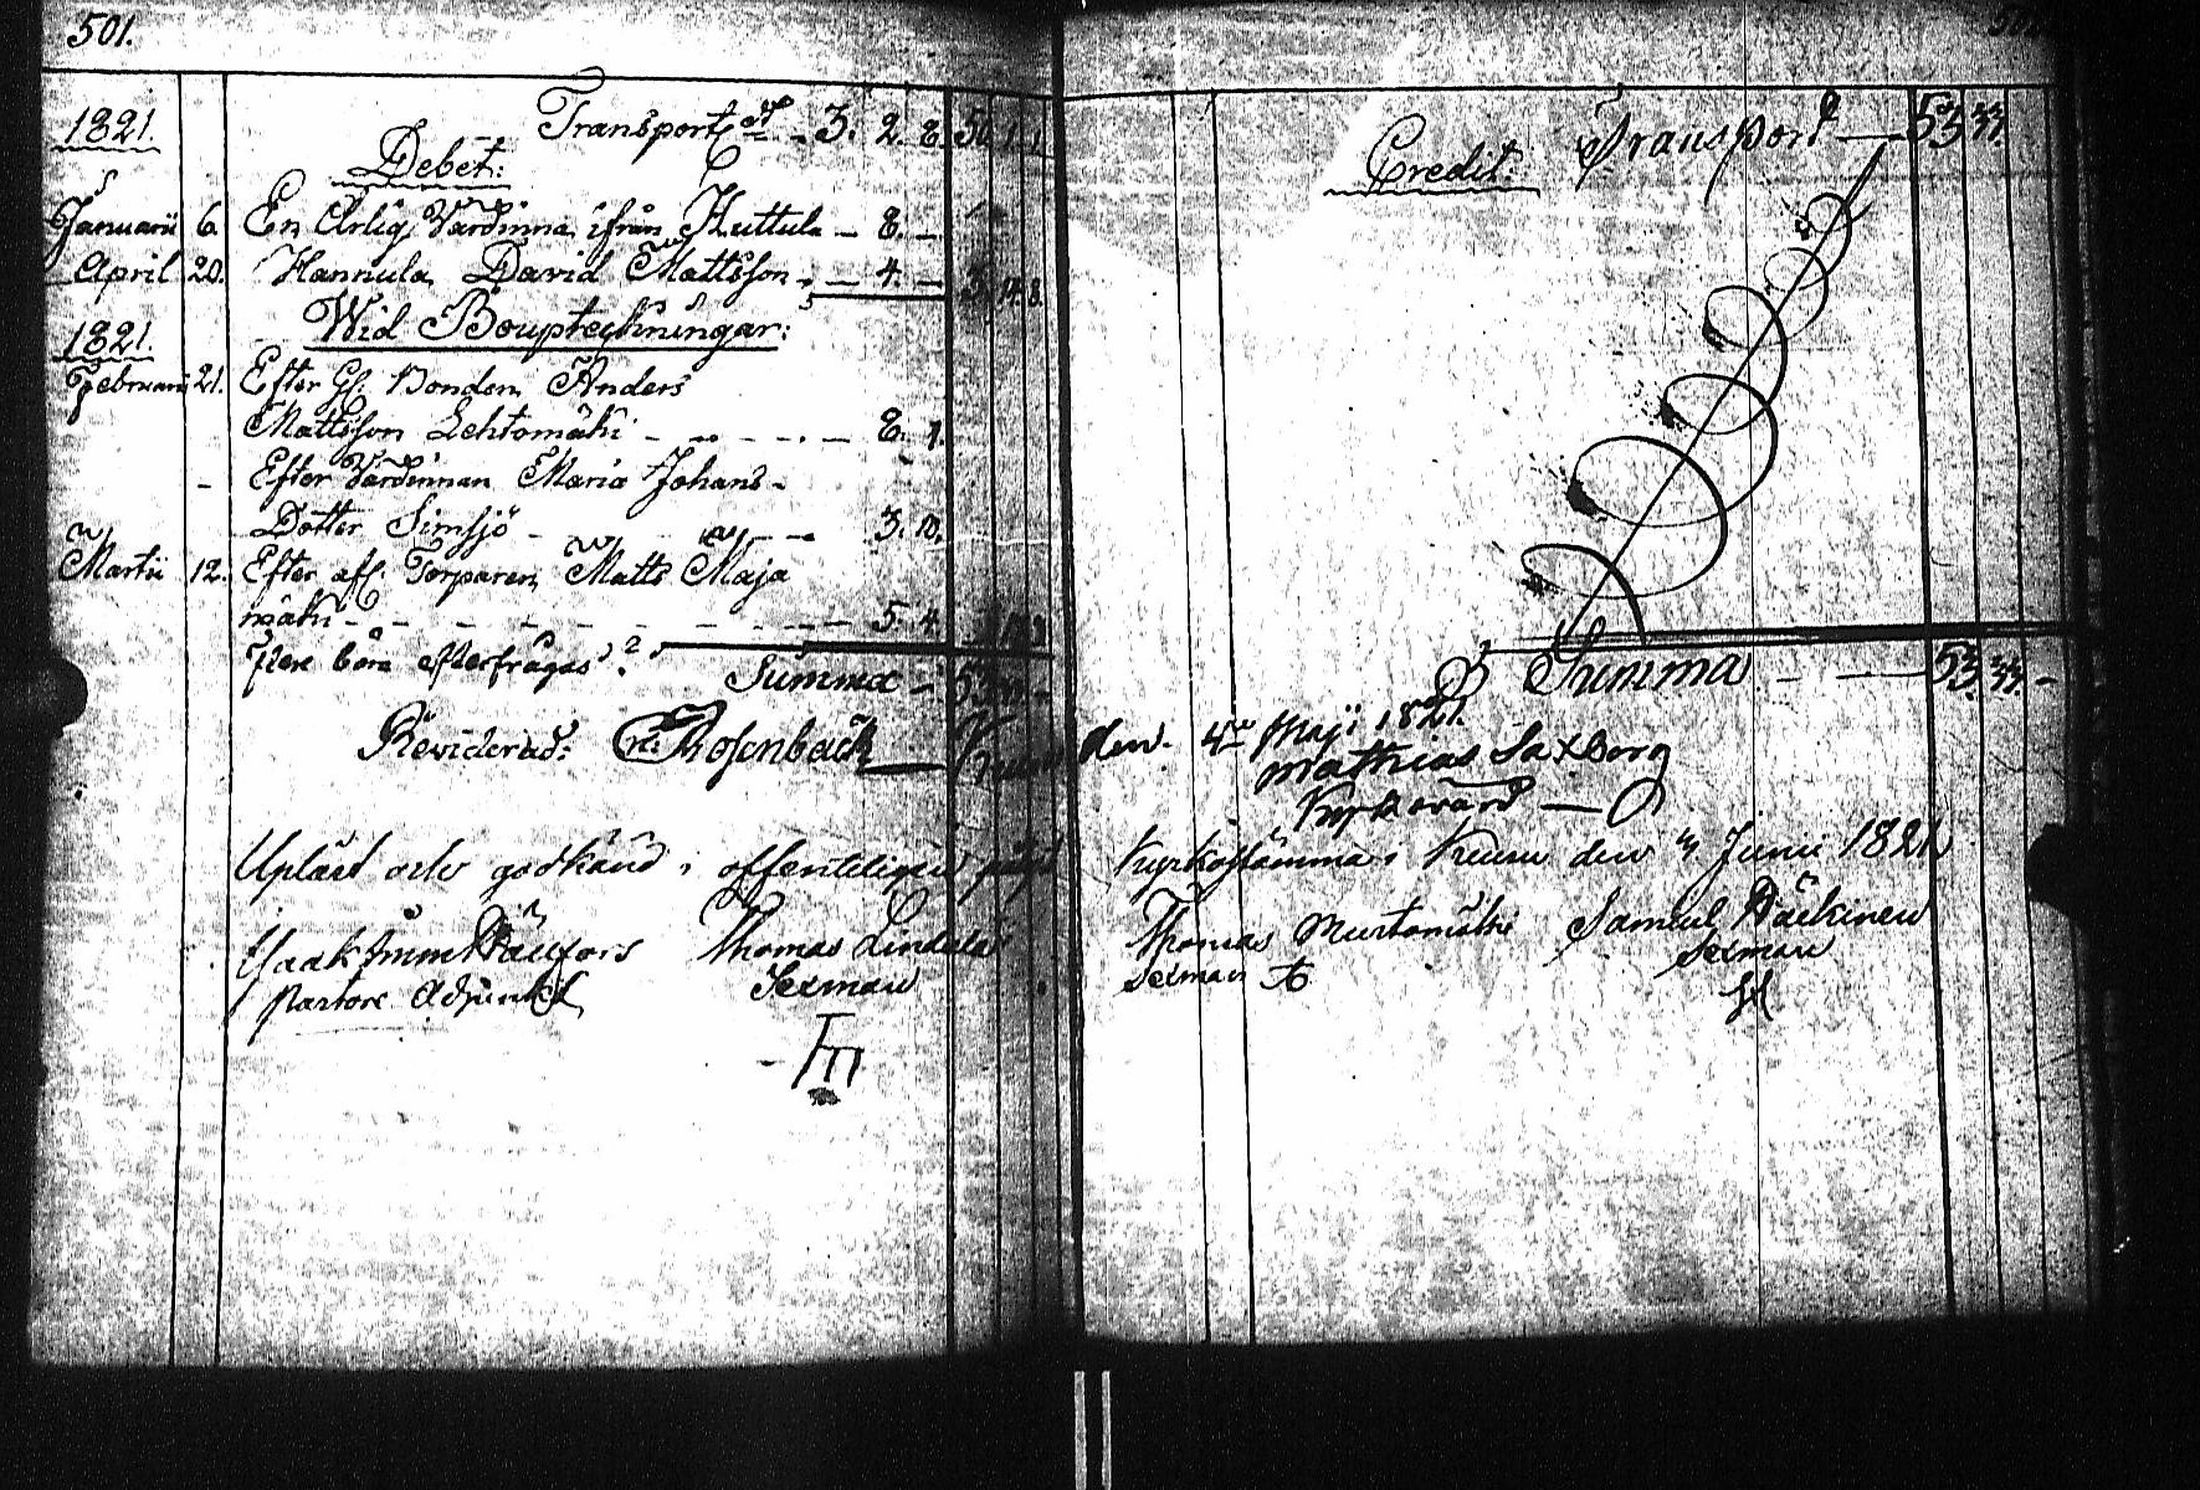 501.
1821. Transport - 3. 2. 8.
Debet:
Januarii 6. En Ärlig Värdinna ifrån Kuttula - 8. -
April 20. Hannula David Mattsson - 4. - 14. 8.
1821. Wid Bouptekningar:
Februarii 21. Efter Gl. Bonden Anders
Mattsson Lehtomäki - - - 8. 1.
- Efter Värdinnan Maria Johans-
Dotter Simsjö - - - 3. 10.
Martii 12. Efter afl. Torparen Matts Maja
mäki - - - 5. 4.
Flere böra efterfrågas?
Summa - 53
Reviderad: Rosenback
Upläst och godkänd i offenteligen
Thomas Lindala
Pastors Adjunkt Sexman
Transport - 53 33.
Credit:
Summa - 53. 33. -
den 4de Maji 1821.
Mathias Saxberg
Kyrkovärd
Kyrkostämma i Kuru den Junii 1821
Thomas Murtomäki Samuel Päckinen
Sexman Sexman